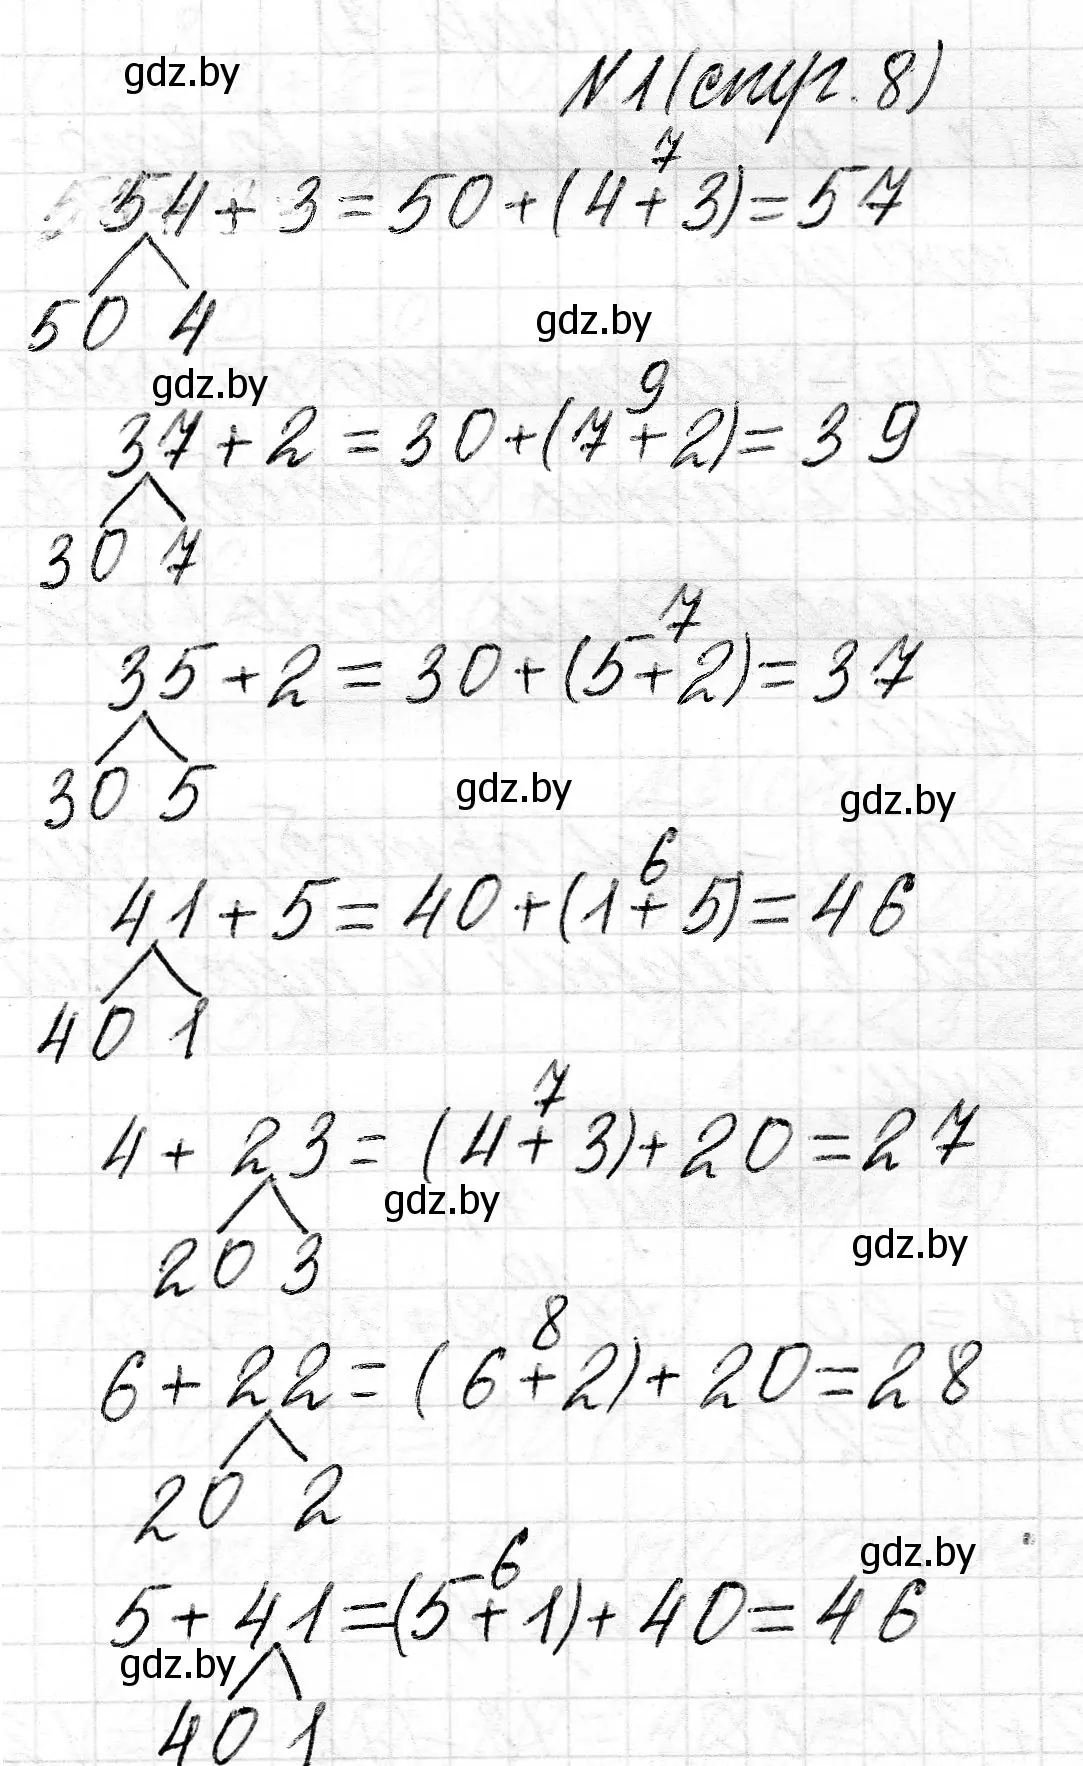 gdz.by
N1(стр. 8)
7
54 + 3 = 50 + (4 + 3) = 57
50 4
gdz.by
gdz.by
9
37 + 2 = 30 + (7 + 2) = 39
30 7
7
35 + 2 = 30 + (5 + 2) = 37
30 5
gdz.by
gdz.by
6
41 + 5 = 40 + (1 + 5) = 46
40 1
7
4 + 23 = (4 + 3) + 20 = 27
gdz.by
20 3
gdz.by
8
6 + 22 = (6 + 2) + 20 = 28
20 2
6
gdz.by
5 + 41 = (5 + 1) + 40 = 46
gdz.by
40 1